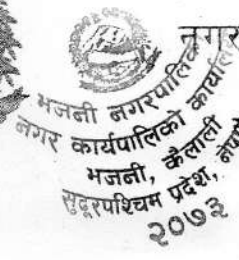 नगर
भजनी नगरपालिका
नगर कार्यपालिको कार्यालय
भजनी, कैलाली
सुदूरपश्चिम प्रदेश, नेपाल
२०७३